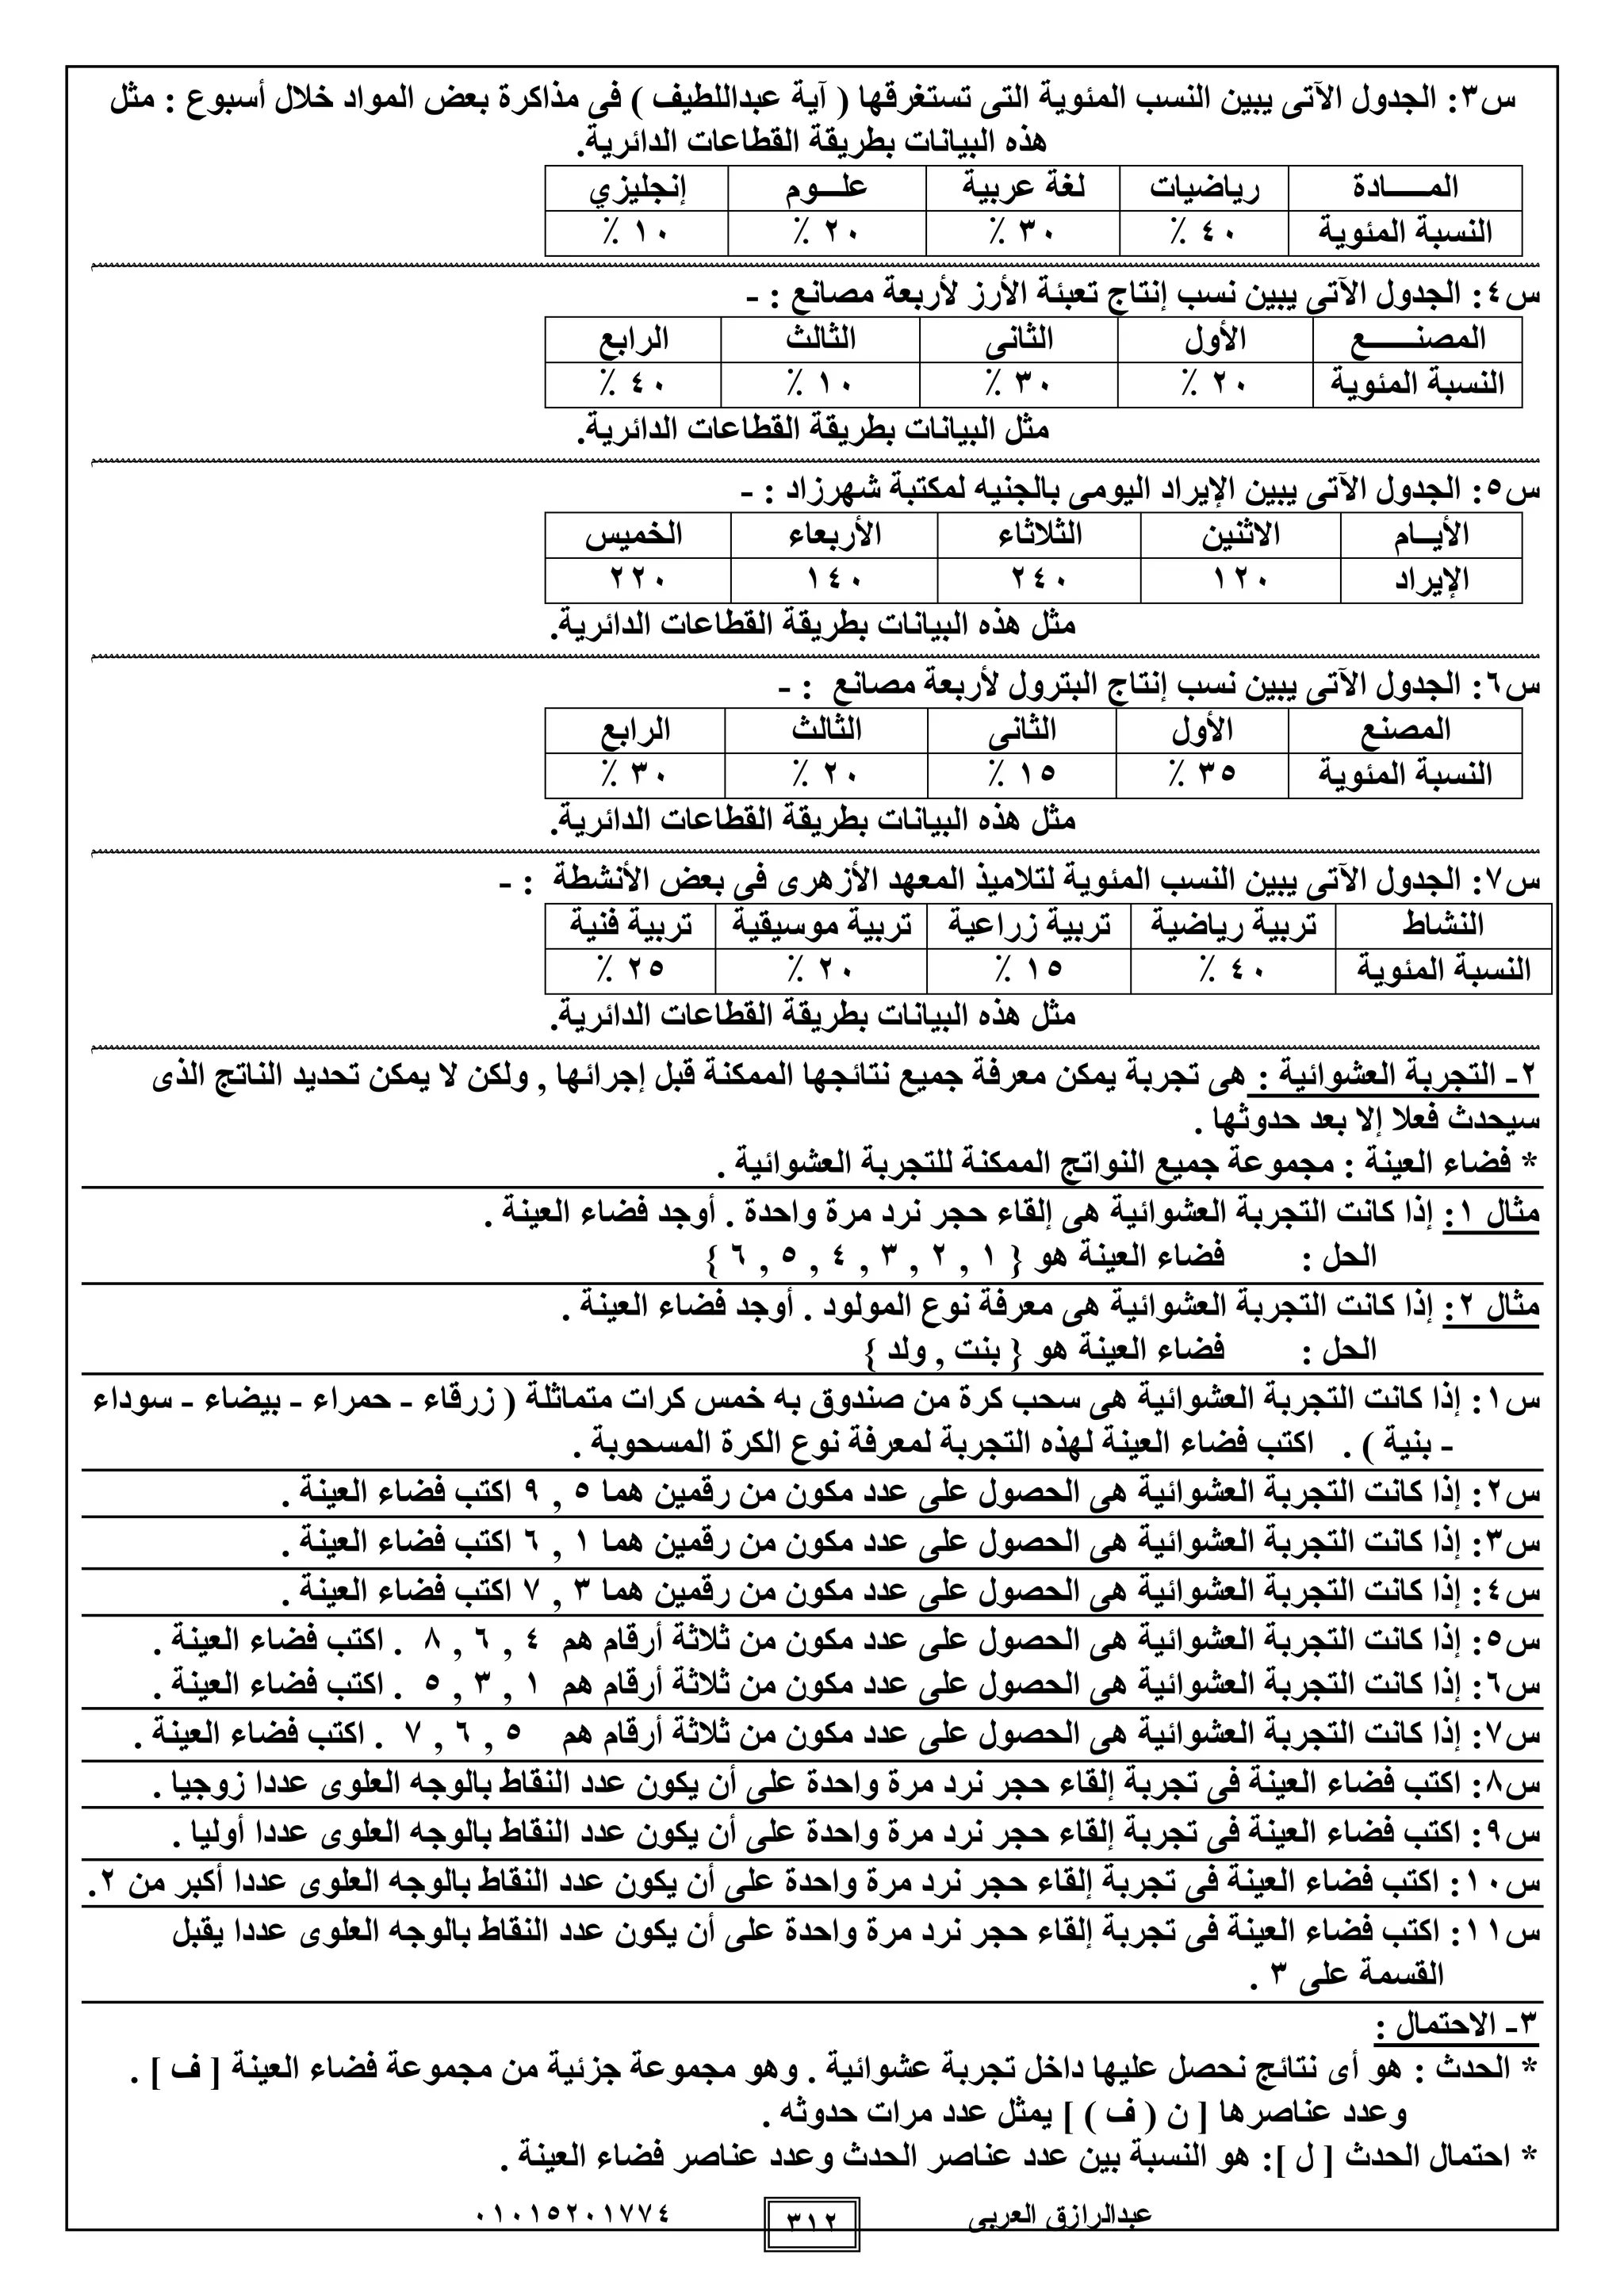 س٣: الجدول الآتى يبين النسب المئوية التى تستغرقها ( آية عبداللطيف ) فى مذاكرة بعض المواد خلال أسبوع : مثل
هذه البيانات بطريقة القطاعات الدائرية.
المـــــادة رياضيات لغة عربية علـــوم إنجليزي
النسبة المئوية ٤٠ ٪ ٣٠ ٪ ٢٠ ٪ ١٠ ٪
س٤: الجدول الآتى يبين نسب إنتاج تعبئة الأرز لأربعة مصانع : -
المصنــــــع الأول الثانى الثالث الرابع
النسبة المئوية ٢٠ ٪ ٣٠ ٪ ١٠ ٪ ٤٠ ٪
مثل البيانات بطريقة القطاعات الدائرية.
س٥: الجدول الآتى يبين الإيراد اليومى بالجنيه لمكتبة شهرزاد : -
الأيــام الاثنين الثلاثاء الأربعاء الخميس
الإيراد ١٢٠ ٢٤٠ ١٤٠ ٢٢٠
مثل هذه البيانات بطريقة القطاعات الدائرية.
س٦: الجدول الآتى يبين نسب إنتاج البترول لأربعة مصانع : -
المصنع الأول الثانى الثالث الرابع
النسبة المئوية ٣٥ ٪ ١٥ ٪ ٢٠ ٪ ٣٠ ٪
مثل هذه البيانات بطريقة القطاعات الدائرية.
س٧: الجدول الآتى يبين النسب المئوية لتلاميذ المعهد الأزهرى فى بعض الأنشطة : -
النشاط تربية رياضية تربية زراعية تربية موسيقية تربية فنية
النسبة المئوية ٤٠ ٪ ١٥ ٪ ٢٠ ٪ ٢٥ ٪
مثل هذه البيانات بطريقة القطاعات الدائرية.
٢- التجربة العشوائية : هى تجربة يمكن معرفة جميع نتائجها الممكنة قبل إجرائها , ولكن لا يمكن تحديد الناتج الذى
سيحدث فعلا إلا بعد حدوثها .
* فضاء العينة : مجموعة جميع النواتج الممكنة للتجربة العشوائية .
مثال ١: إذا كانت التجربة العشوائية هى إلقاء حجر نرد مرة واحدة . أوجد فضاء العينة .
الحل : فضاء العينة هو { ١ , ٢ , ٣ , ٤ , ٥ , ٦ }
مثال ٢: إذا كانت التجربة العشوائية هى معرفة نوع المولود . أوجد فضاء العينة .
الحل : فضاء العينة هو { بنت , ولد }
س١: إذا كانت التجربة العشوائية هى سحب كرة من صندوق به خمس كرات متماثلة ( زرقاء - حمراء - بيضاء - سوداء
- بنية ) . اكتب فضاء العينة لهذه التجربة لمعرفة نوع الكرة المسحوبة .
س٢: إذا كانت التجربة العشوائية هى الحصول على عدد مكون من رقمين هما ٥ , ٩ اكتب فضاء العينة .
س٣: إذا كانت التجربة العشوائية هى الحصول على عدد مكون من رقمين هما ١ , ٦ اكتب فضاء العينة .
س٤: إذا كانت التجربة العشوائية هى الحصول على عدد مكون من رقمين هما ٣ , ٧ اكتب فضاء العينة .
س٥: إذا كانت التجربة العشوائية هى الحصول على عدد مكون من ثلاثة أرقام هم ٤ , ٦ , ٨ . اكتب فضاء العينة .
س٦: إذا كانت التجربة العشوائية هى الحصول على عدد مكون من ثلاثة أرقام هم ١ , ٣ , ٥ . اكتب فضاء العينة .
س٧: إذا كانت التجربة العشوائية هى الحصول على عدد مكون من ثلاثة أرقام هم ٥ , ٦ , ٧ . اكتب فضاء العينة .
س٨: اكتب فضاء العينة فى تجربة إلقاء حجر نرد مرة واحدة على أن يكون عدد النقاط بالوجه العلوى عددا زوجيا .
س٩: اكتب فضاء العينة فى تجربة إلقاء حجر نرد مرة واحدة على أن يكون عدد النقاط بالوجه العلوى عددا أوليا .
س١٠: اكتب فضاء العينة فى تجربة إلقاء حجر نرد مرة واحدة على أن يكون عدد النقاط بالوجه العلوى عددا أكبر من ٢.
س١١: اكتب فضاء العينة فى تجربة إلقاء حجر نرد مرة واحدة على أن يكون عدد النقاط بالوجه العلوى عددا يقبل
القسمة على ٣ .
٣- الاحتمال :
* الحدث : هو أى نتائج نحصل عليها داخل تجربة عشوائية . وهو مجموعة جزئية من مجموعة فضاء العينة [ ف ] .
وعدد عناصرها [ ن ( ف ) ] يمثل عدد مرات حدوثه .
* احتمال الحدث [ ل ]: هو النسبة بين عدد عناصر الحدث وعدد عناصر فضاء العينة .
عبدالرازق العربى ٣١٢ ٠١٠١٥٢٠١٧٧٤